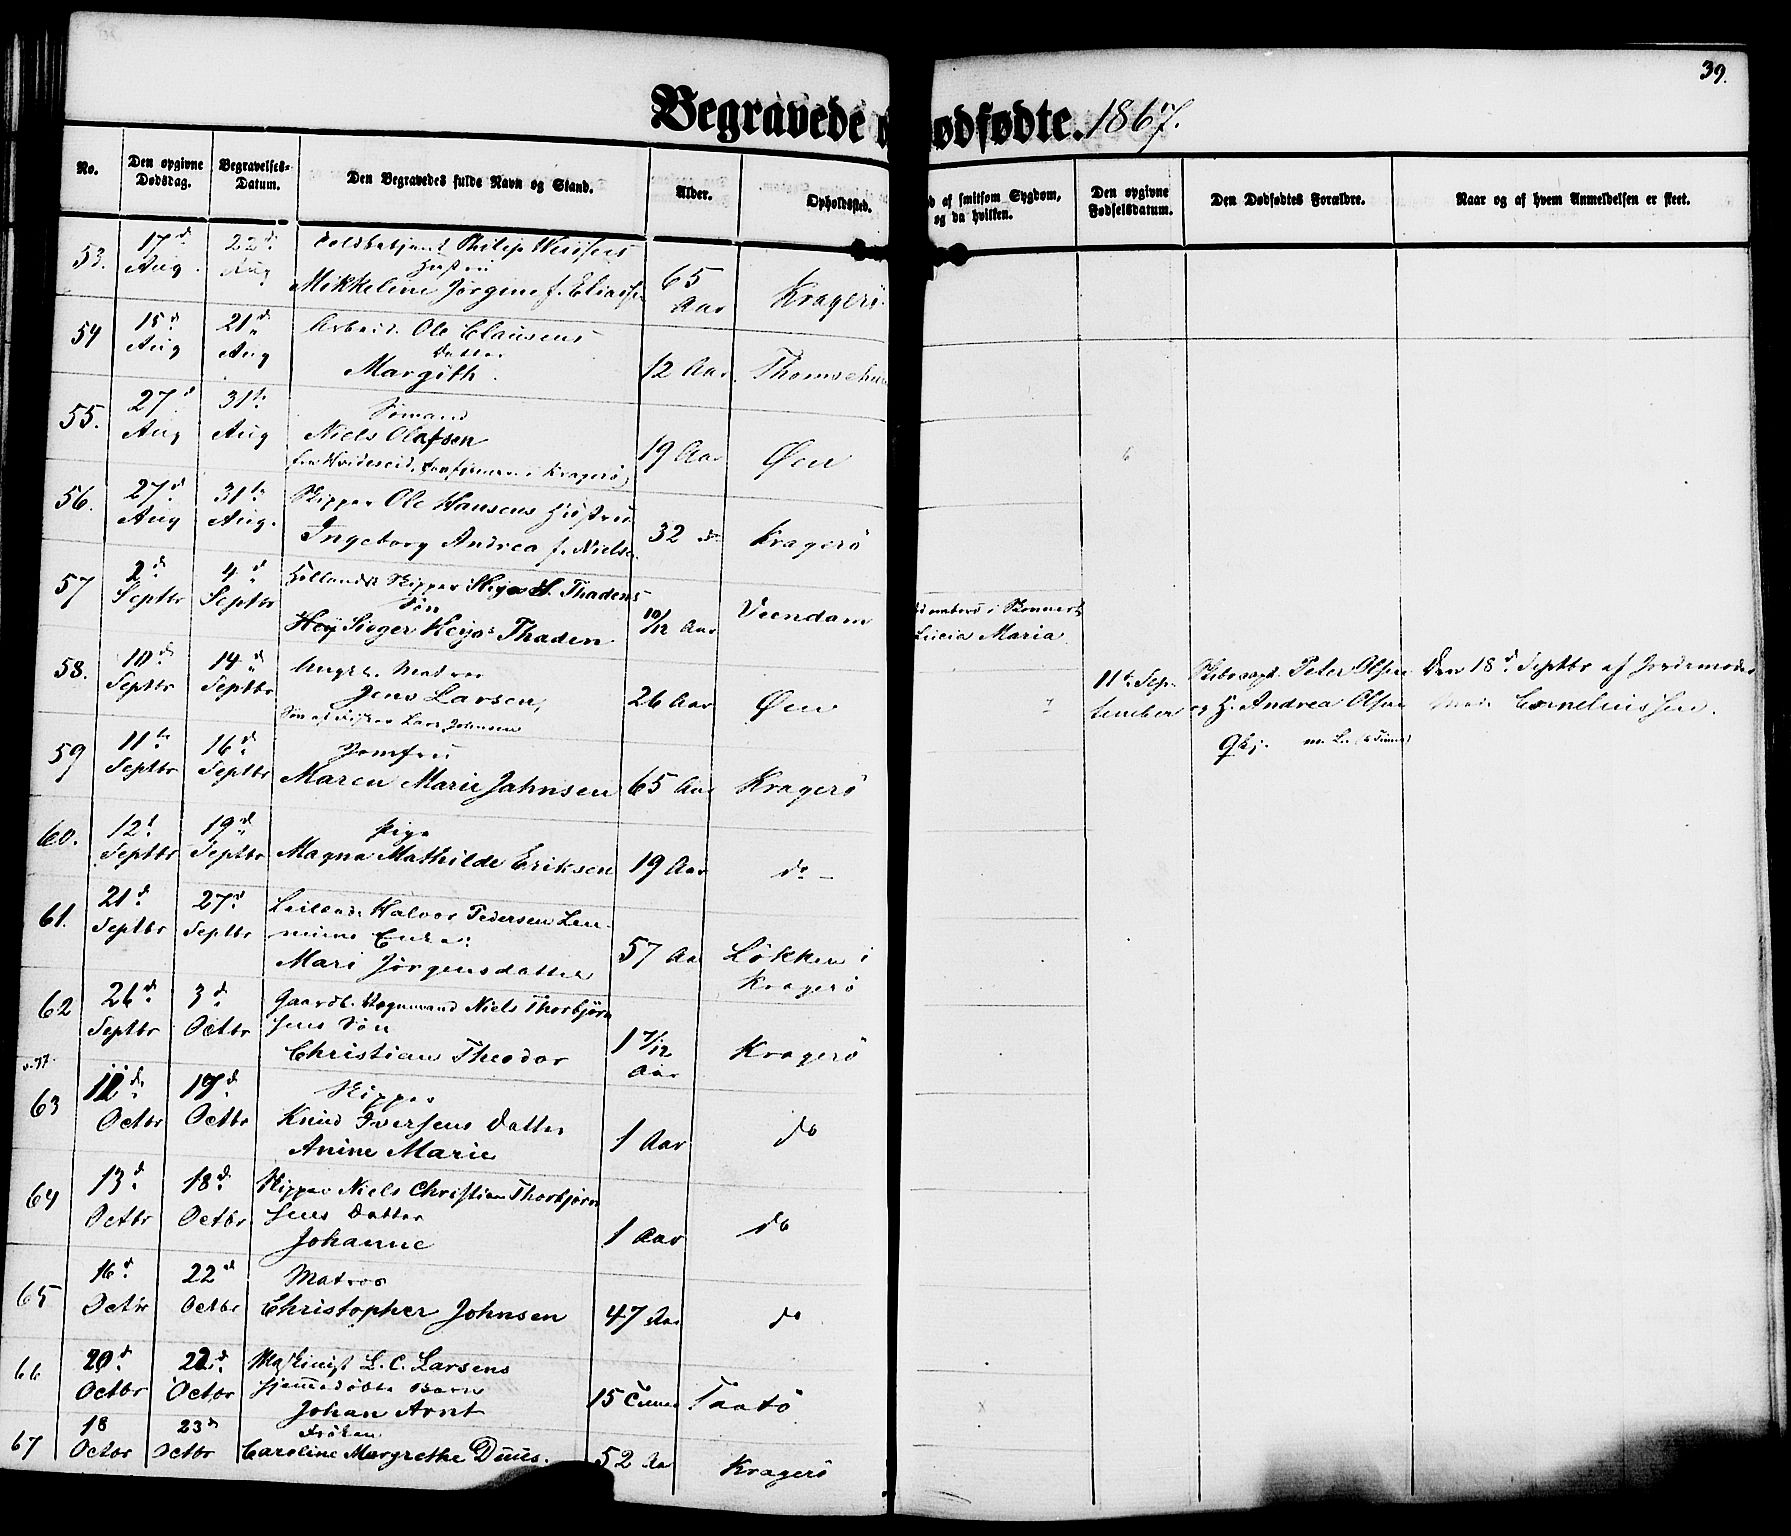 39.
Begravede ødfødte. 1867.
No. Den opgivne Dødsdag. Begravelses-Datum. Den Begravedes fulde Navn og Stand. Alder. Opholdssted. d af smitsom Sygdom, og da hvilken. Den opgivne Fødselsdatum. Den Dødfødtes Forældre. Naar og af hvem Anmeldelsen er skeet.
53. 17d Aug. 22d Aug
Philip
Mikkeline Jørgine f. Eliassen
65 Aar Kragerö
54 15d Aug 21d Aug
Arbeid. Ole Clausens
Datter
Margith.
12 Aar
55. 27d Aug 31te Aug
Sømand
Niels Olafsen
fra Hvideseid, i Kragerö
19 Aar Øen
56. 27d Aug 31te Aug.
Skipper Ole Hansens Hustru
Ingeborg Andrea f. Nielsen
32 do Kragerö
57 2d Septbr 4d Septbr
Hollandsk Skipper H. Thadens
Søn
Hey Sieger Heyo Thaden
10/12 Aar Veendam
ombord i
Lucia Maria
58. 10d Septbr 14d Septbr
Matros
Jens Larsen,
Søn af Lars Johnsen
26 Aar Øen
11te September
Peter Olsen
og H. Andrea Olsen
Den 18d Septbr af Jordemoder
Corneliussen.
59 11te Septbr 16d Septbr
Jomfru
Maren Marie Jahnsen
65 Aar Kragerö
60. 12t Septbr 19d Septbr
Pige
Magna Mathilde Eriksen
19 Aar do
61. 21d Septbr 27d Septbr
Halvor Pedersen
Enke
Mari Jörgensdatter
57 Aar Lökken i
Kragerö
62 26d Septbr 3d Octbr
Gaardbr. Vognmand Niels Thorbjørn
sens Søn
Christian Theodor
1 7/12 Aar Kragerö
63 12d Octbr 17d Octbr
Skipper
Knud Iversens Datter
Anine Marie
1 Aar do
64 13d Octbr 18d Octbr
Skipper Niels Christian Thorbjørn
sens Datter
Johanne
1 Aar do
65 16d Octbr 22d Octbr
Matros
Christopher Johnsen
47 Aar do
66 20d Octbr 22d Octbr
Maskinist L. C. Larsens
hjemmedöbte Barn
Johan Arnt
15 Timer Taatö
67 18 Octbr 23d Octbr
Frøken
Caroline Margrethe Duus.
52 Aar Kragerö